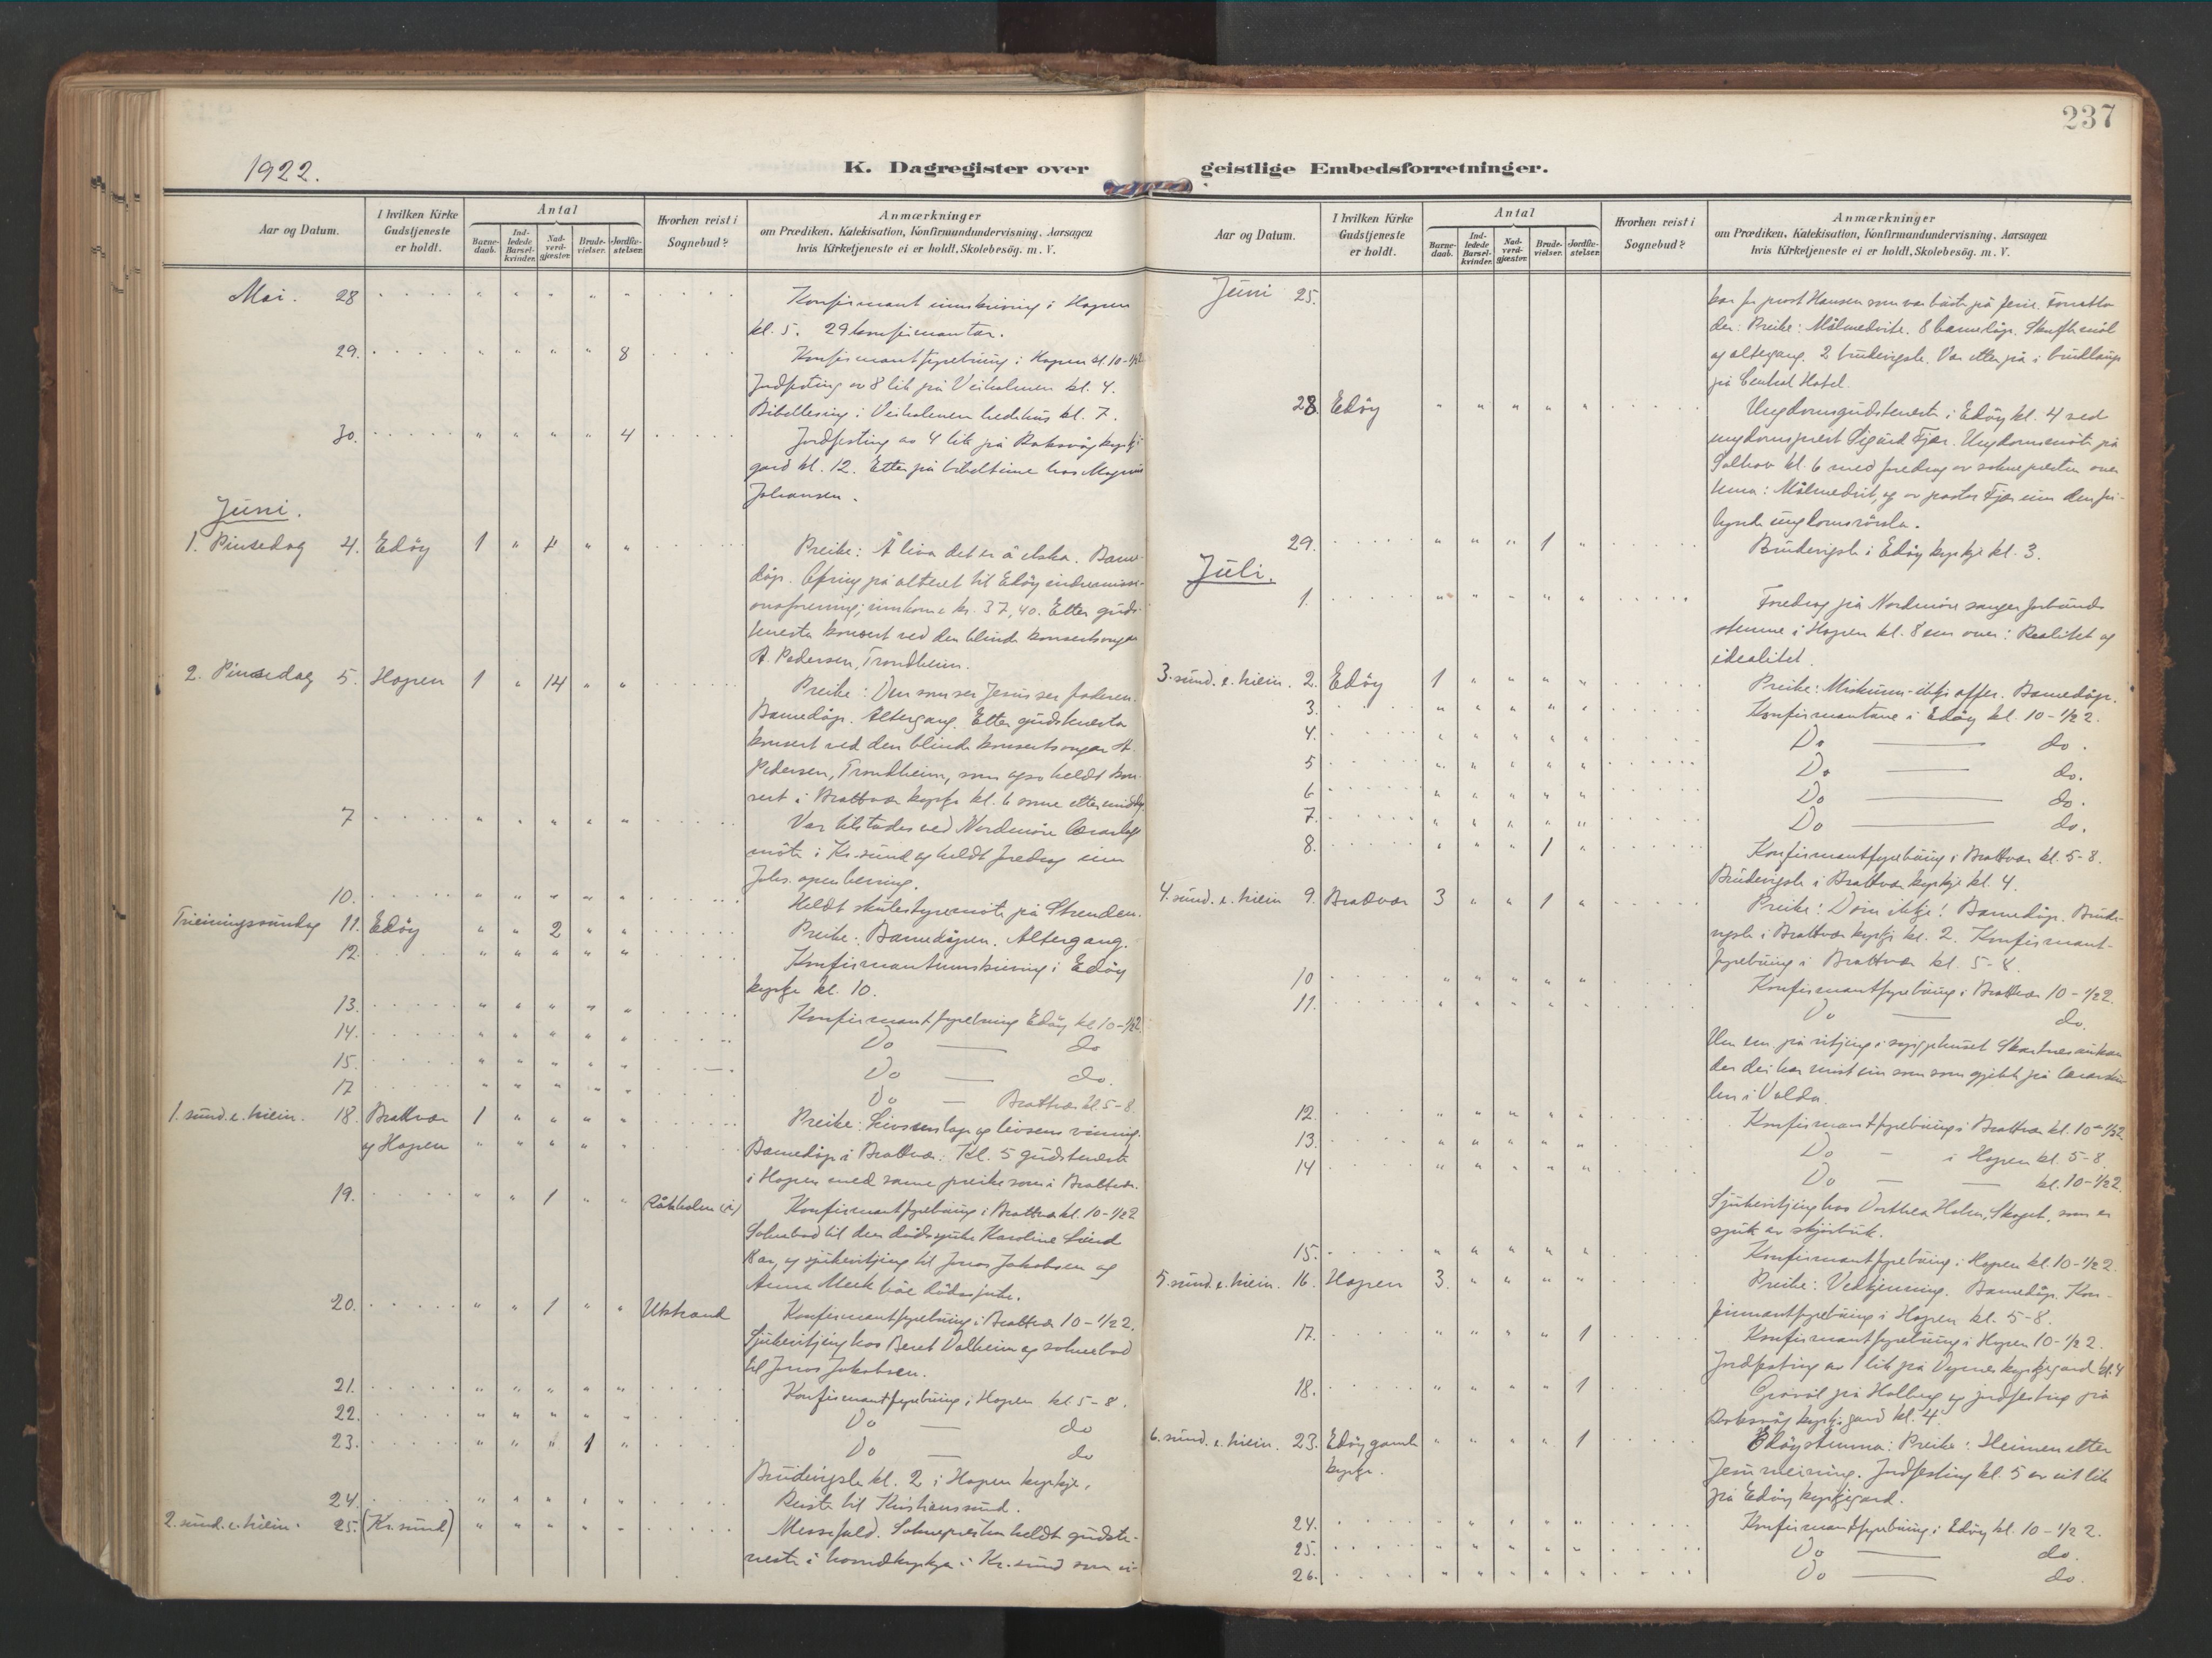 237
1922.
K. Dagregister over geistlige Embedsforretninger.
Aar og Datum.
I hvilken Kirke Gudstjeneste er holdt.
Antal
Barne-daab.
Ind-ledede Barsel-kvinder.
Nad-verd-gjæster.
Brude-vielser.
Jordfæ-stelser.
Hvorhen reist i Sognebud?
Anmærkninger
om Prædiken, Katekisation, Konfirmandundervisning, Aarsagen
hvis Kirketjeneste ei er holdt, Skolebesög. m. V.
Mai. 28 Konfirmant innskriving i Hopen
kl. 5. 29 konfirmantar.
29. 8 Konfirmantfyrebuing i Hopen kl. 10-1/2 2
Jordfesting av 8 lik på Veiholmen kl. 4.
Bibellesing i Veiholmen bedehus kl. 7.
30. 4 Jordfesting av 4 lik på Roksvåg kyrkje
gard kl. 12. Etter på bibeltime hos Magnus
Johansen.
Juni.
1. Pinsedag 4. Edöy 1 4 Preike: Å liva det er å elska. Barne-
dåp. Ofring på alteret til Edöy indremissi-
onsforening; innkome kr. 37,40. Etter guds-
tenesta konsert ved den blinde konsertsongar
A. Pedersen, Trondheim.
2. Pinsedag 5. Hopen 1 14 Preike: Den som ser Jesus ser faderen.
Barnedåp. Altergang. Etter gudstenesta
konsert ved den blinde konsertsongar A.
Pedersen, Trondheim, som ogso heldt kon-
sert i Brattvær kyrkje kl. 6 same ettermiddag
7 Var tilstades ved Nordmöre lærarlags
möte i Kr.sund og heldt foredrag um
Johs. openbering.
10. Heldt skulestyremöte på Stranden.
Trieiningssundag 11. Edöy 2 Preike: Barnedåpen. Altergang.
12. Konfirmantinnskriving i Edöy
kyrkje kl. 10.
13. Konfirmantfyrebuing Edöy kl 10-1/2 2
14. Do — do
15. Do — do.
17 Do — Brattvær kl. 5-8.
1. sund. e. triein. 18. Brattvær 1 Preike: Livsens tap og livsens vinning.
og Hopen Barnedåp i Brattvær. Kl. 5 gudsteneste
i Hopen med same preike som i Brattvær.
19. 1 Konfirmantfyrebuing i Brattvær kl. 10-1/2 2
Soknebod til den dödssjuke Karoline Lund
og sjukevitjing til Jonas Jakobsen og
Anna Meek båe dödssjuke.
20. 1 Utstrand Konfirmantfyrebuing i Brattvær 10-1/2 2.
Sjukevitjing hos Beret Valheim og soknebod
til Jonas Jakobsen.
21. Konfirmantfyrebuing i Hopen kl 5-8.
22. Do — do
23. 1 Do — do
Brudevigsle kl. 2 i Hopen kyrkje.
24. Reiste til Kristiansund.
2. sund. e. triein. 25. (Kr.sund) Messefald. Soknepresten heldt gudste-
neste i hovudkyrkja i Kr.sund som vi-
Aar og Datum.
I hvilken Kirke Gudstjeneste er holdt.
Antal
Barne-daab.
Ind-ledede Barsel-kvinder.
Nad-verd-gjæster.
Brude-vielser.
Jordfæ-stelser.
Hvorhen reist i Sognebud?
Anmærkninger
om Prædiken, Katekisation, Konfirmandundervisning, Aarsagen
hvis Kirketjeneste ei er holdt, Skolebesög. m. V.
Juni 25. kar for prost Hansen som var burte på ferie.
Preike: Målmedvite. 8 barnedåp. Skriftemål
og altergang. 2 brudevigsle. Var etter på i brudlaup
på Central Hotel.
28. Edöy Ungdomsgudsteneste i Edöy kl. 4 ved
ungdomsprest Sigurd Fjær. Ungdomsmöte på
Solhov kl. 6 med foredrag av soknepresten over
tema: Målmedvit, og av pastor Fjær um den fri-
lynde ungdomsrörsla.
29. 1 Brudevigsle i Edöy kyrkje kl. 3.
Juli.
1. Foredrag på Nordmöre songarforbunds
stemne i Hopen kl. 8 em over: Realitet og
idealitet.
3. sund. e. triein. 2. Edöy 1 Preike: Miskunn - ikkje offer. Barnedåp.
3. Konfirmantane i Edöy kl. 10-1/2 2.
4. Do — do.
5 Do — do.
6 Do — do.
7. Do — do.
8. 1 Konfirmantfyrebuing i Brattvær kl. 5-8.
Brudevigsle i Brattvær kyrkje kl. 4.
4. sund. e. triein 9. Brattvær 3 1 Preike: Döm ikkje! Barnedåp. Brude-
vigsle i Brattvær kyrkje kl. 2. Konfirmant-
fyrebuing i Brattvær kl. 5-8.
10 Konfirmantfyrebuing i Brattvær 10-1/2 2.
11. Do — do.
Um em. på vitjing i syrgjehuset
der dei har mist ein son som gjekk på lærarsku-
len i Volda.
12. Konfirmantfyrebuing i Brattvær kl. 10-1/2 2
13. Do — i Hopen kl. 5-8.
14 Do — kl. 10-1/2 2.
Sjukevitjing hos Dorthea Holen, Skaget, som er
sjuk av skjörbuk.
15. Konfirmantfyrebuing i Hopen kl. 10-1/2 2.
5. sund. e. triein. 16. Hopen 3. Preike: Vedkjenning. Barnedåp. Kon-
firmantfyrebuing i Hopen kl. 5-8.
17. 1 Konfirmantfyrebuing i Hopen 10-1/2 2.
Jordfesting av 1 lik på Dyrnes kyrkjegard kl. 4
18. 1 Gravöl på Holberg og jordfesting på
Roksvåg kyrkjegard kl. 4.
6. sund. e. triein. 23. Edöy gamle 1 Edöystemna: Preike: Heimen etter
kyrkje. Jesu meining. Jordfesting kl. 5 av eit lik
på Edöy kyrkjegard.
24. Konfirmantfyrebuing i Edöy kl. 10-1/2 2.
25. Do — do.
26. Do — do.